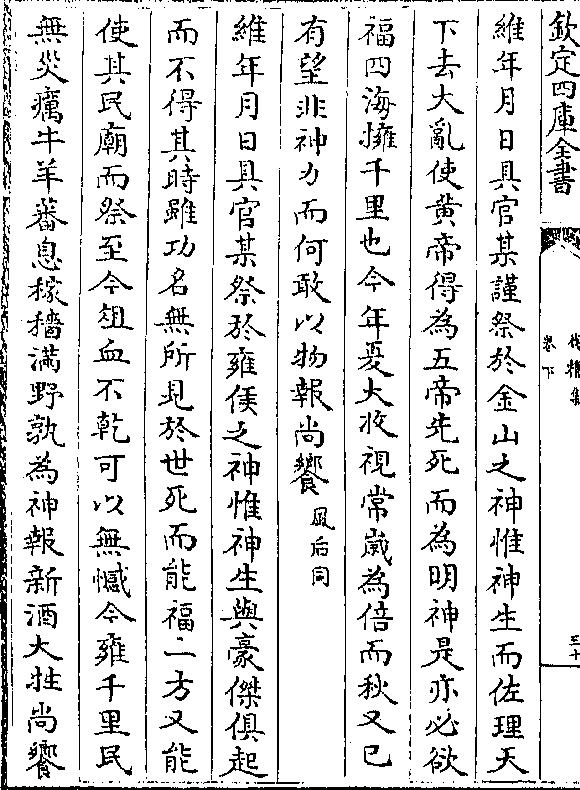 欽定四庫全書
伐檀集
卷下
三十
維年月日具官某謹祭於金山之神惟神生而佐理天
下去大亂使黄帝得為五帝先死而為明神是亦必欲
福四海擁千里也今年夏大收視常歲為倍而秋又已
有望非神力而何敢以物報尚饗風后同
維年月日具官某祭於雍侯之神惟神生與豪傑俱起
而不得其時雖功名無所見於世死而能福二方又能
使其民廟而祭至今俎血不乾可以無憾今雍千里民
無災癘牛羊蕃息稼穡滿野孰為神報新酒大牲尚饗